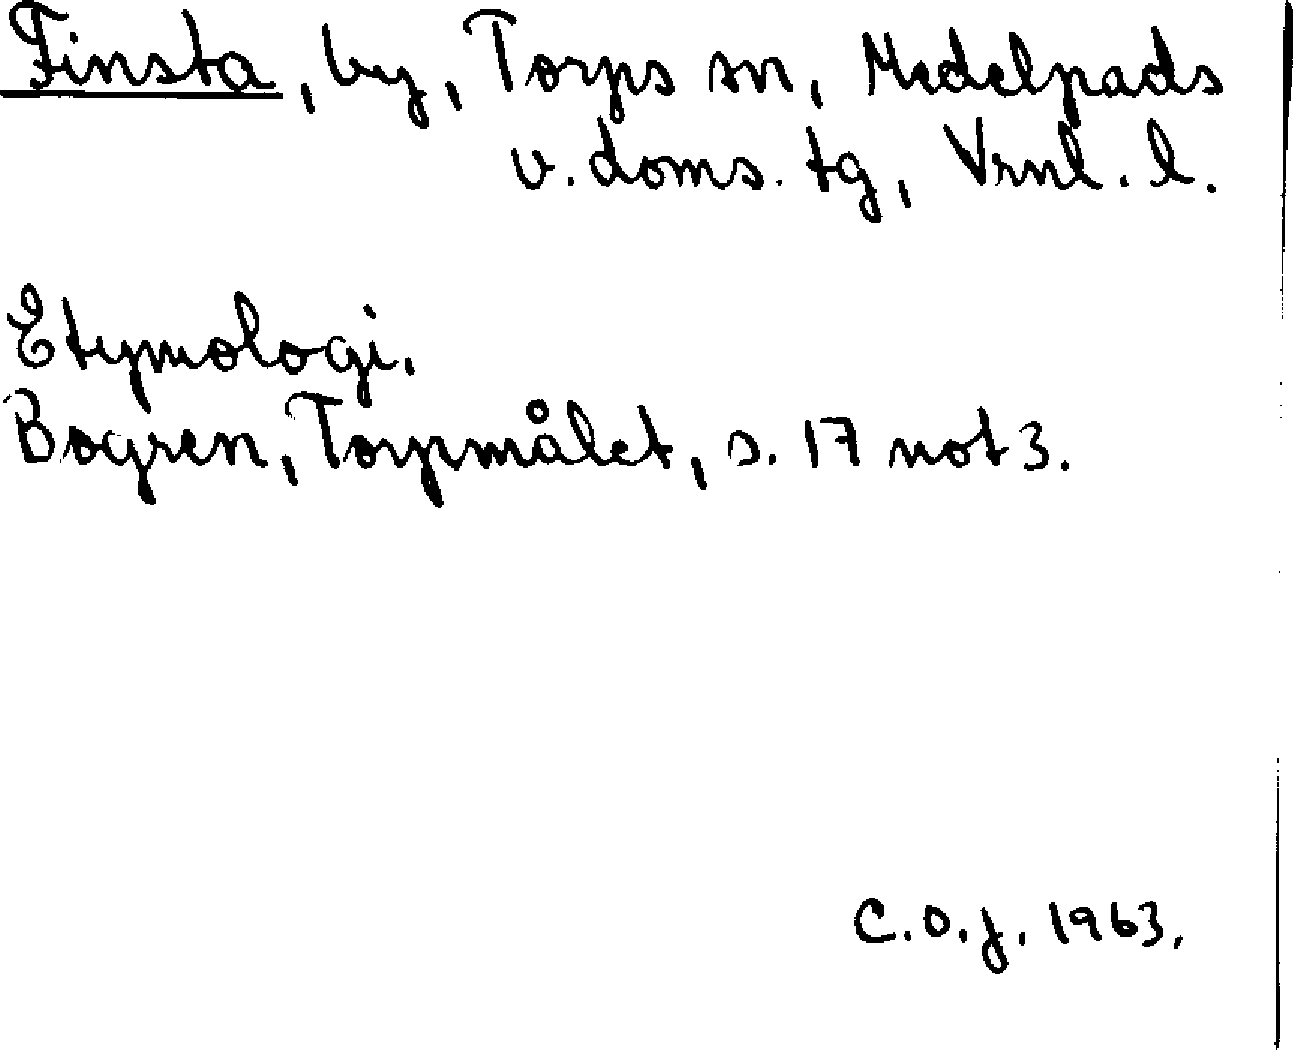 Finsta, by, Torps sn, Medelpads
v. doms. tg, Vrnl. l.
Etymologi.
Bogren, Torpmålet, s. 17 not 3.
C.O.J. 1963.